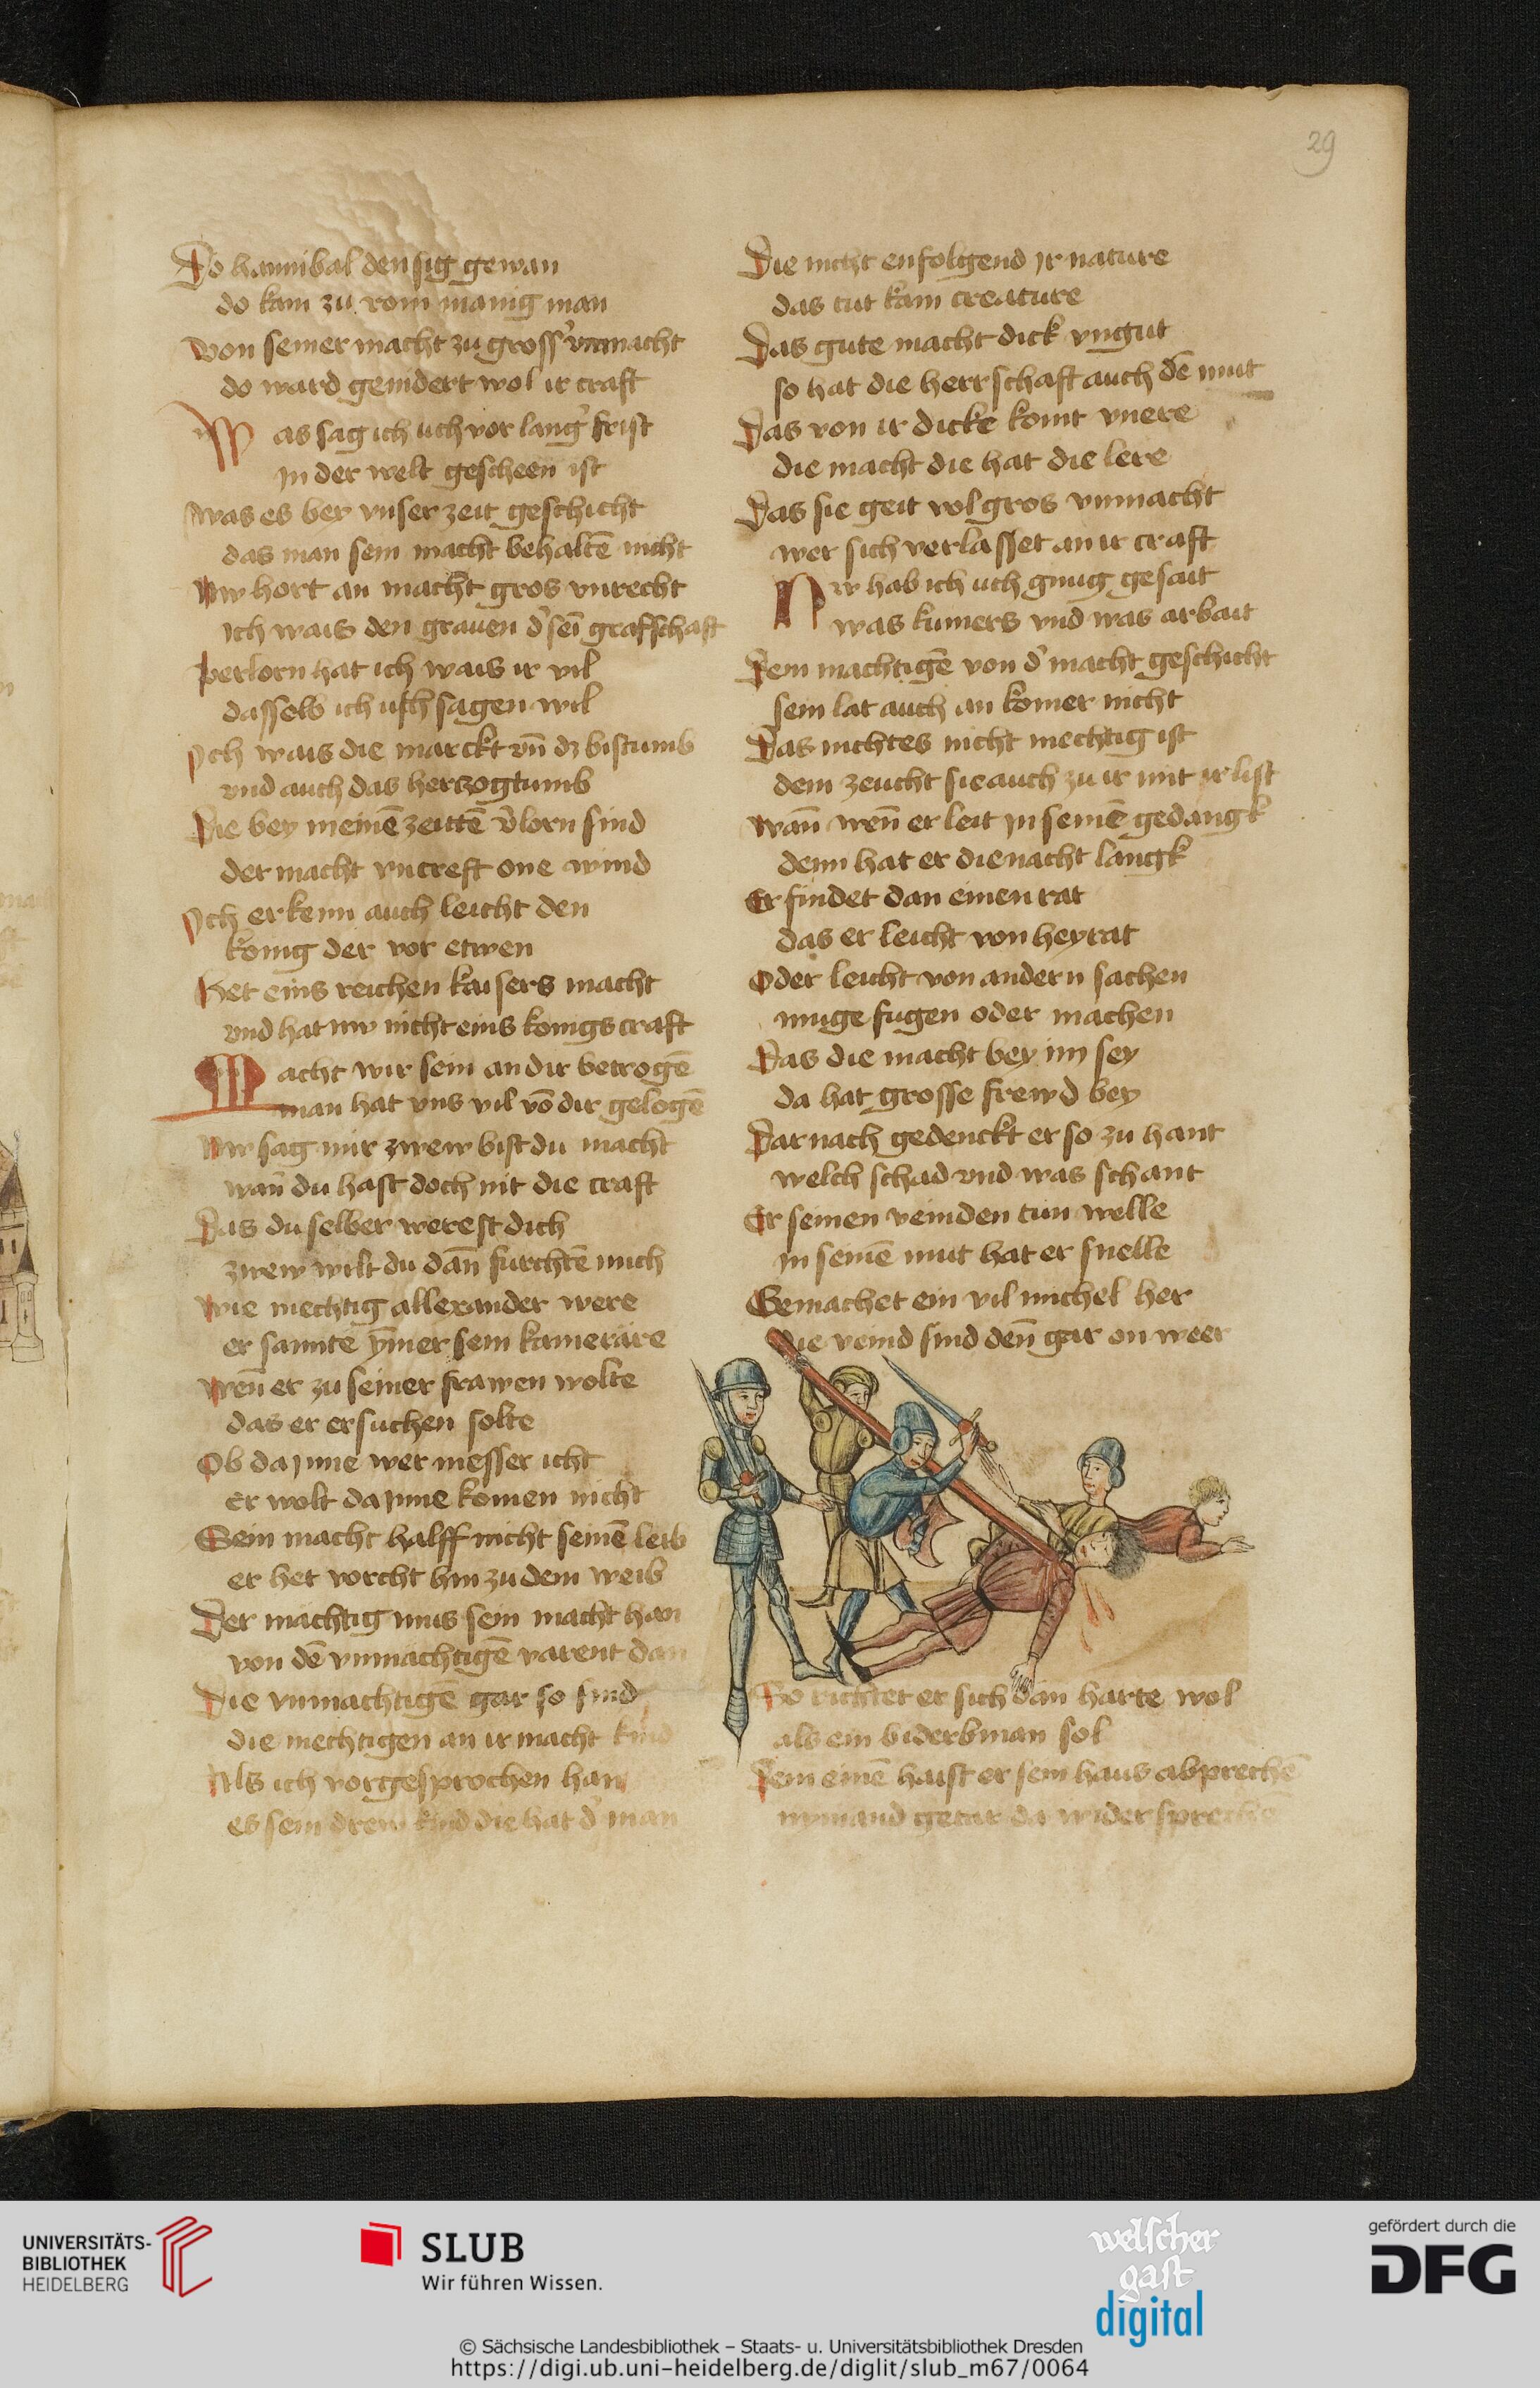 29
Do hannibal den sig gewan
do kam zu rom manig man
Von seiner macht zu gross' vnmacht
do ward gemdert wol ir craft
Was sag ich uch vor lang' frist
in der welt gescheen ist
was es bey vnser zeit geschicht
das man sein macht behaltē nicht
Nw hort an macht gros vnrecht
ich wais den grauen d' sei grafschaft
Verlorn hat ich wais ir vil
dasselb ich uch sagen wil
Ich wais die marckt vn̄ dz bistumb
vnd auch das herzogtumb
Die bey meinē zeittē v'lorn sind
der macht vncreft one wind
Ich erkenn auch leicht den
konig der vor etwen
Het eins reichen kaisers macht
vnd hat nw nicht eins konigs craft
Macht wir sein an dir betrogē
man hat vns vil vō dir gelogē
Nw sag mir zwew bist du macht
wan̄ du hast doch nit die craft
Das du selber werest dich
zwew wilt du dan̄ furchtē mich
wie mechtig allexander were
er sannte ȳmer sein kamerare
wen̄ er zu seiner frawen wolte
das er ersuchen solte
Ob da jnne wer messer icht
er wolt da jnne komen nicht
Sein macht halff nicht seinē leib
er het vorcht hin zu dem weib
Der machtig mus sein macht han
von dē vnmachtigē varent dan
Die vnmachtigē gar so sind
die mechtigen an ir macht kind
Als ich vorgesprochen han
es sein drew kind die hat d' man
Die nicht enfolgend jr nature
das tut kain creature
Das gute macht dick vngut
so hat die herrschaft auch dē mut
Das von ir dicke komt vnere
die macht die hat die lere
Das sie geit vol gros vnmacht
wer sich verlasset an ir craft
Nw hab ich uch gnug gesait
was kumers vnd was arbait
Dem machtigē von d' macht geschicht
sein lat auch an komer nicht
Das nichtes nicht mechtig ist
dem zeucht sie auch zu ir mit ir list
wan̄ wen̄ er leit in seinē gedangk
denn hat er die nacht langk
Er findet dan einen rat
das er leicht von heyrat
Oder leicht von andern sachen
muge fugen oder machen
Das die macht bey im sey
da hat grosse frewd bey
Darnach gedenckt er so zu hant
welch schad vnd was schant
Er seinen veinden tun welle
in seinē mut hat er snelle
Gemachet ein vil michel her
die veind sind den̄ gar on weer
So richtet er sich dan harte wol
als ein biderbman sol
Dem einē haist er sein haus abprechē
nymand getar da wider sprechē
UNIVERSITÄTS-
BIBLIOTHEK
HEIDELBERG
SLUB
Wir führen Wissen.
welscher
gast
digital
gefördert durch die
DFG
© Sächsische Landesbibliothek – Staats- u. Universitätsbibliothek Dresden
https://digi.ub.uni-heidelberg.de/diglit/slub_m67/0064